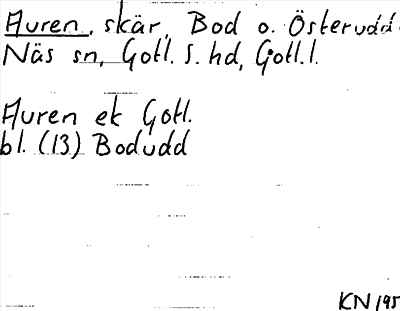 Auren, skär, Bod o. Österudd
Näs sn, Gotl. S. hd, Gotl. l.
Auren ek Gotl.
bl. (13) Bodudd
KN 195